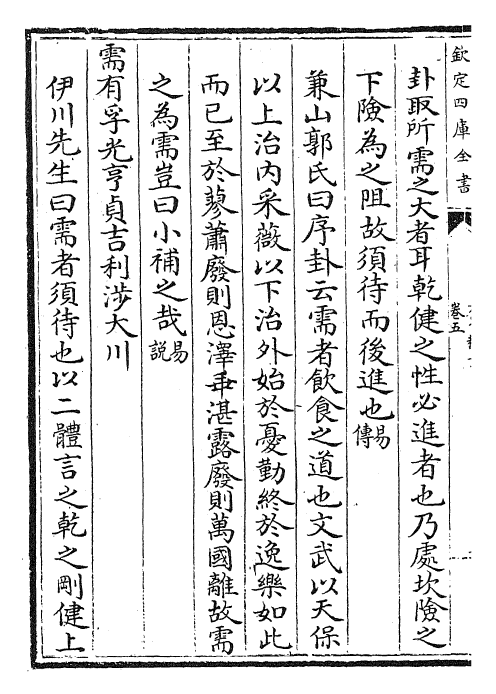 欽定四庫全書
卷五
卦取所需之大者耳乾健之性必進者也乃處坎險之
下險為之阻故須待而後進也易傳
兼山郭氏曰序卦云需者飲食之道也文武以天保
以上治內采薇以下治外始於憂勤終於逸樂如此
而已至於蓼蕭廢則恩澤乖湛露廢則萬國離故需
之為需豈曰小補之哉易說
需有孚光亨貞吉利涉大川
伊川先生曰需者須待也以二體言之乾之剛健上